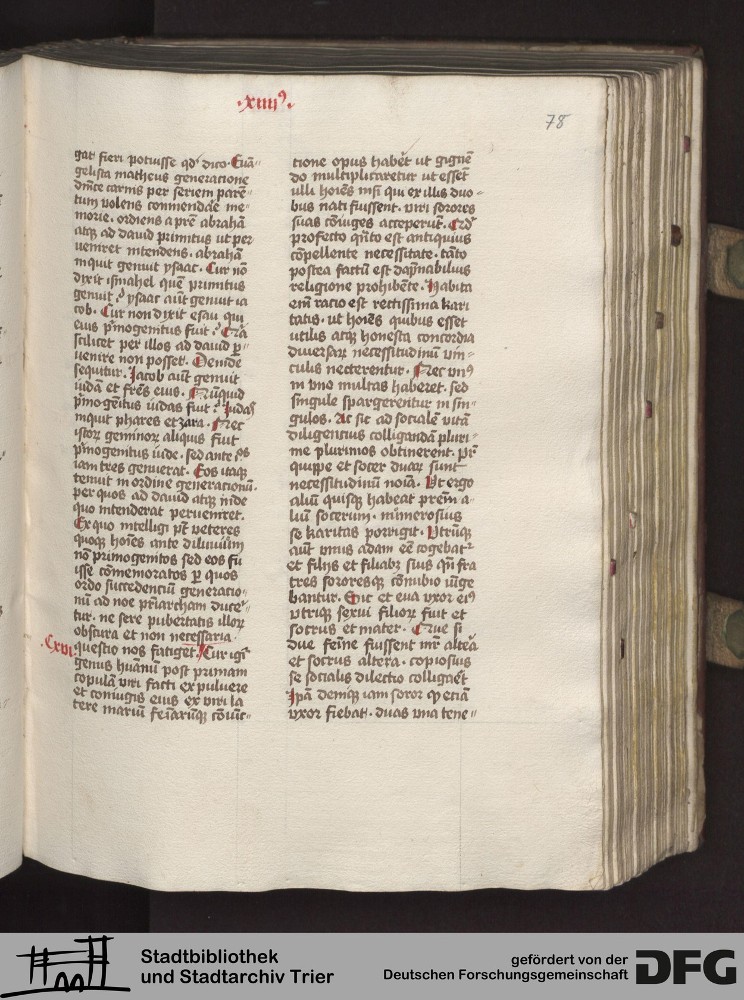 ·xiiij⁹·
78
gat fieri potuisse qd' dico· Euā-
gelista matheus generatione
dn̄ice carnis per seriem parē-
tum volens commendāe me-
morie· ordiens a pr̄e abrahā
atq; ad dauid primitus ut per
ueniret intendens· abrahā
inquit genuit ysaac· Cur nō
dixit ismahel quē primitus
genuit? ysaac aūt genuit ia
cob· Cur non dixit esau qui
eius p̄mogenitus fuit?
scilicet per illos ad dauid p̄-
uenire non posset· Deinde
sequitur· Iacob aūt genuit
iudā et frēs eius· Nūnquid
p̄mogēitus iudas fuit? Iudas
inquit phares et zara· Nec
istoꝝ geminoꝝ aliquis fuit
p̄mogenitus iude· sed ante eos
iam tres genuerat· Eos itaq;
tenuit in ordine generationū·
per quos ad dauid atq; inde
quo intenderat perueniret·
Ex quo intelligi pt̄ veteres
quoq; hoīes ante diluuiūm
nō primogenitos sed eos fu
isse cōmemoratos ꝑ quos
ordo succedentiū generatio-
nū ad noe pr̄iarcham duce-
tur· ne sere pubertatis illoꝝ
obscura et non necessaria·
·Cxvi· questio nos fatiget· Cur igr̄
genus hūanū post primam
copulā viri facti ex puluere
et coniugis eius ex viri la
tere mariū femīarūq; cōiūc-
tione opus habēt ut gignē
do multiplicaretur ut essēt
ulli hoīes nisi qui ex illis duo-
bus nati fuissent· viri sorores
suas cōiuges acceperūt· Qd'
profecto qn̄to est antiquius
cōpellente necessitate· tāto
postea factū est dāpnabilius
religione prohibēte· Habita
eni ratio est rectissima kari
tatis· ut hoīes quibus esset
utilis atq; honesta concordia
diuersaꝝ necessitudinū vin-
culis necterentur· Nec vn⁹
in vno multas haberet· sed
singule spargerentur in sin-
gulos· Ac sic ad socialē vitā
diligentius colligandā pluri-
me plurimos obtinerent· pr̄
quippe et socer duaꝝ sunt
necessitudinū noīa· Vt ergo
aliū quisq; habeat prēm a-
liū socerum· numerosius
se karitas porrigit· Vtrūq;
aūt vnus adam eē cogebat²
et filijs et filiab; suis qn̄ fra
tres sororesq; cōnubio iūge
bantur· Sic et eua vxor ei⁹
vtriq; sexui filioꝝ fuit et
socrus et mater· Que si
due femīe fuissent mr̄ altēa
et socrus altera· copiosius
se socialis dilectio colligaēt
Ipā deniq; iam soror qꝫ etiā
vxor fiebat· duas vna tene-
Stadtbibliothek
und Stadtarchiv Trier
gefördert von der
Deutschen Forschungsgemeinschaft
DFG